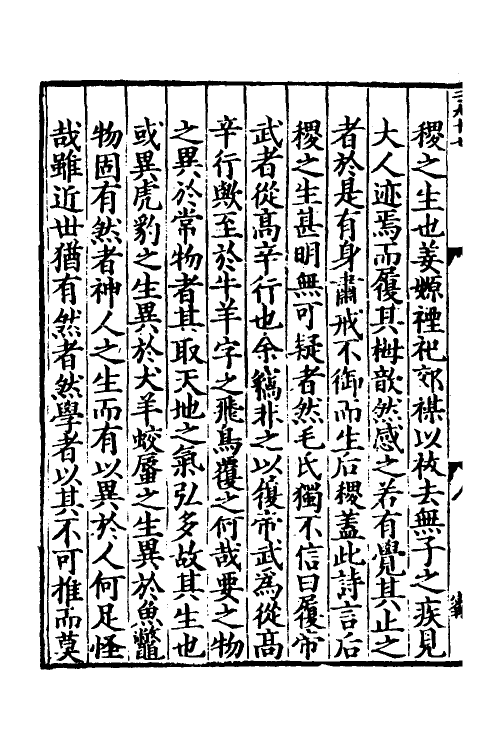 稷之生也姜嫄禋祀郊禖以祓去無子之疾見
大人迹焉而履其栂歆然感之若有覺其止之
者於是有身肅戒不御而生后稷盖此詩言后
稷之生甚明無可疑者然毛氏獨不信曰履帝
武者從髙辛行也余竊非之以履帝武為從髙
辛行歟至於牛羊字之飛鳥覆之何哉要之物
之異於常物者其取天地之氣弘多故其生也
或異虎豹之生異於犬羊蛟蜃之生異於魚鼈
物固有然者神人之生而有以異於人何足怪
哉雖近世猶有然者然學者以其不可推而莫